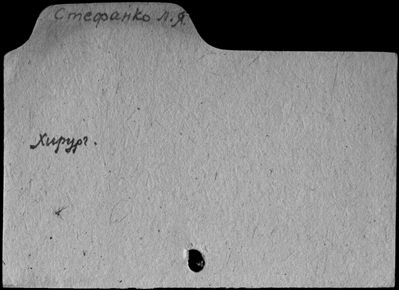 Стефанко Л.Я.
Хирург.